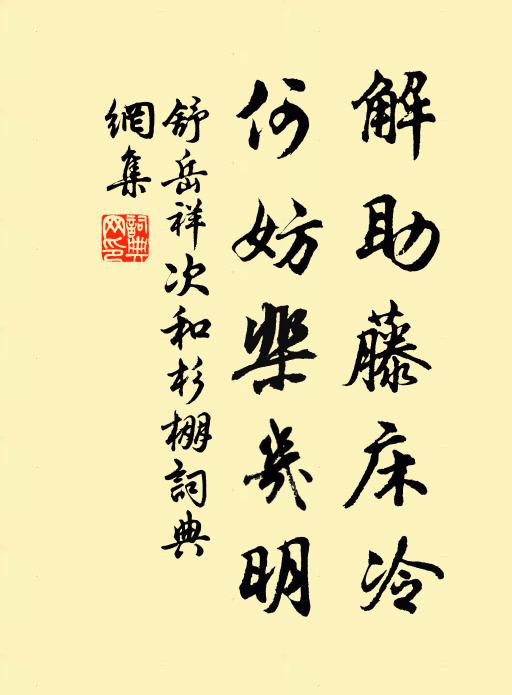 解助藤床冷
何妨棐幾明
舒岳祥次和杉棚詞典
網集
詞典
网印